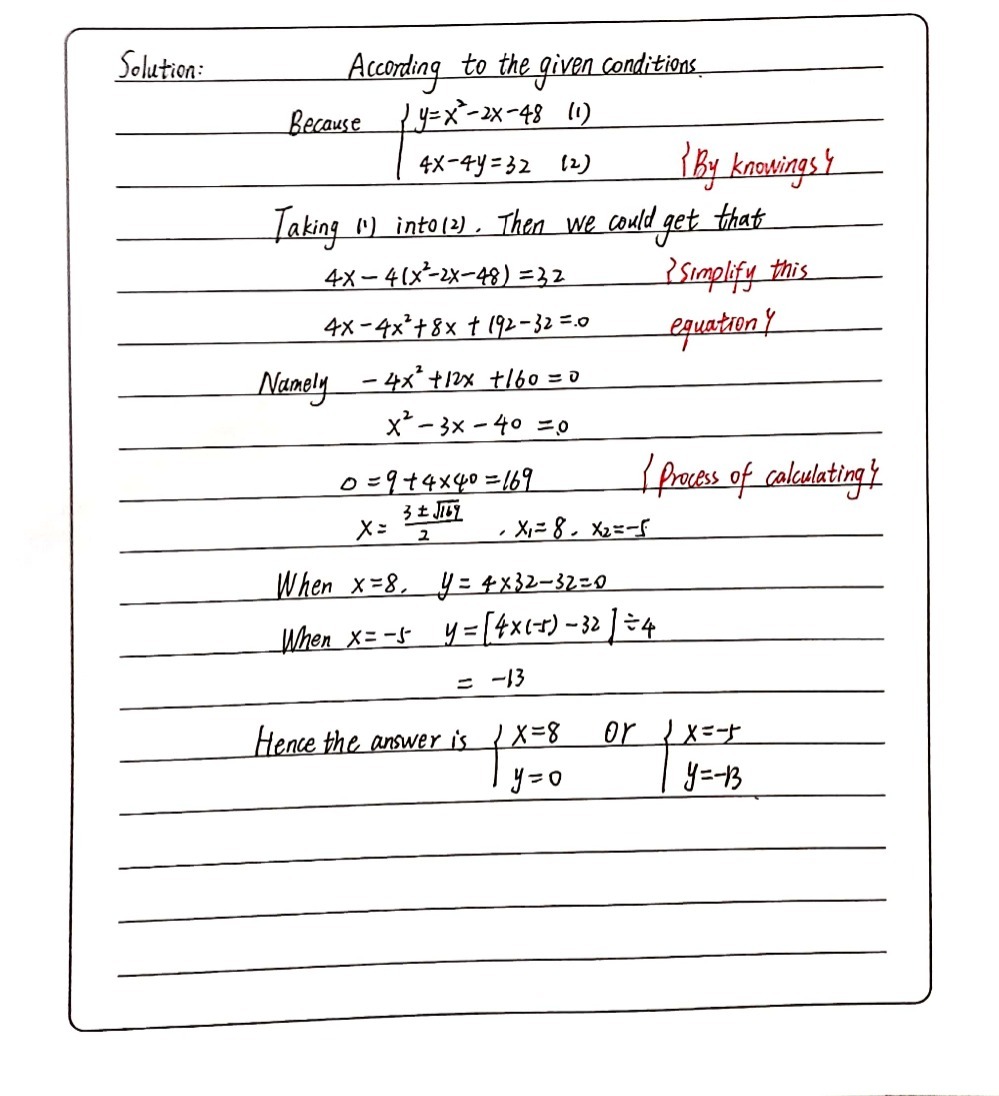 Solution: According to the given conditions.
Because { y=x²-2x-48 (1)
4x-4y=32 (2) {By knowings}
Taking (1) into (2). Then we could get that
4x-4(x²-2x-48)=32 {Simplify this
4x-4x²+8x+192-32=0 equation}
Namely -4x²+12x+160=0
x²-3x-40=0
0=9+4×40=169 {Process of calculating}
x= (3±√169)/2 , x₁=8, x₂=-5
When x=8, y=4×32-32=0
When x=-5 y=[4×(-5)-32]÷4
= -13
Hence the answer is { x=8 or { x=-5
y=0 y=-13